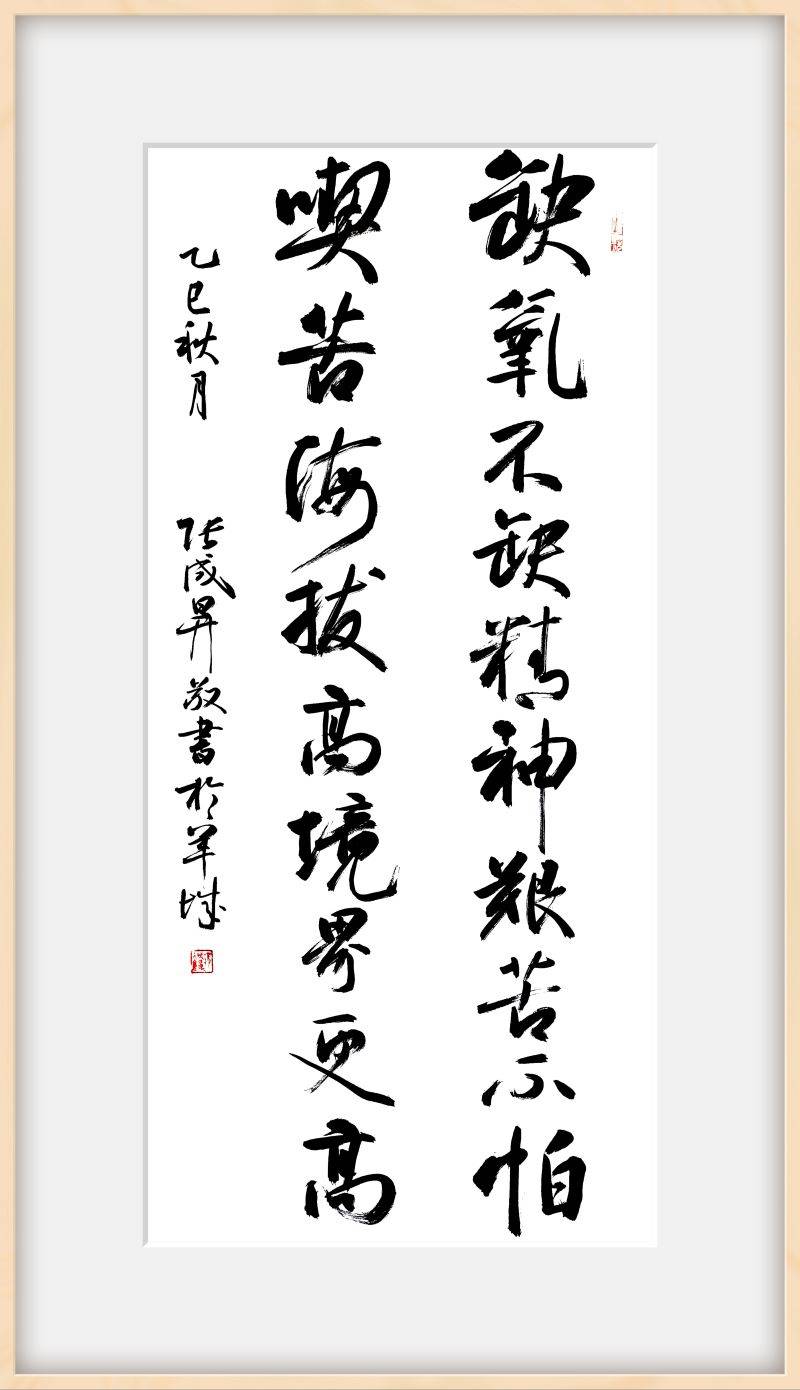 缺氧不缺精神艰苦不怕
喫苦海拔高境界更高
乙巳秋月 张成昇敬書於羊城